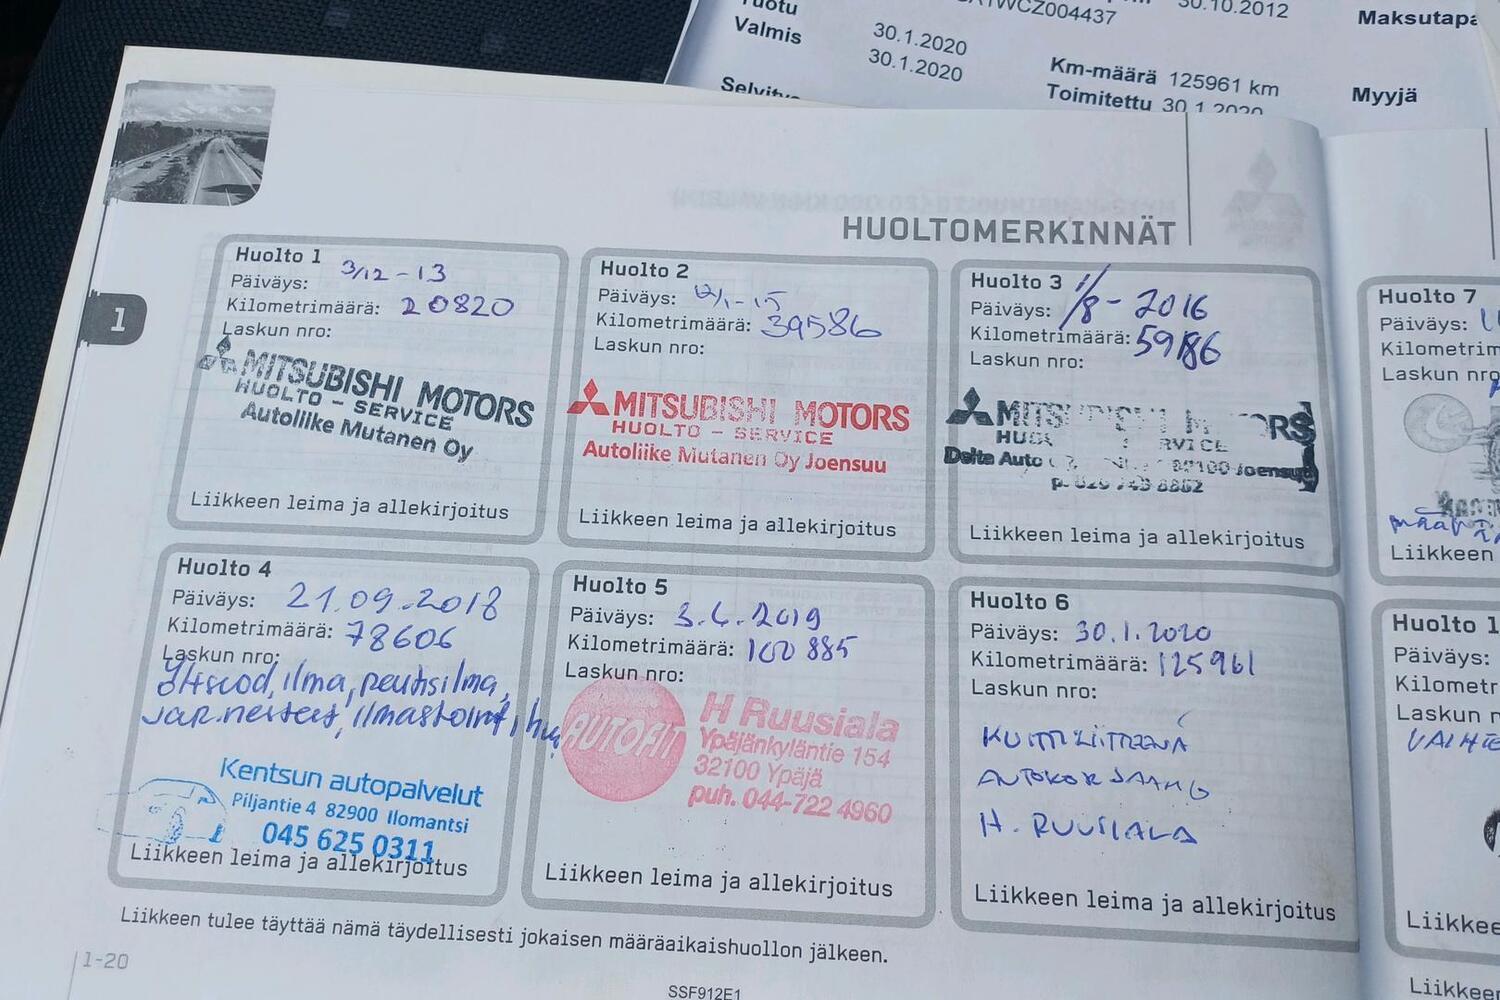 Tuotu
WCZ004437
30.10.2012
Maksutapa
Valmis
30.1.2020
30.1.2020
Km-määrä 125961 km
Toimitettu 30.1.2020
Myyjä
Selvitys
HUOLTOMERKINNÄT
1
Huolto 1
Päiväys: 3/12-13
Kilometrimäärä: 20820
Laskun nro:
MITSUBISHI MOTORS
HUOLTO - SERVICE
Autoliike Mutanen Oy
Liikkeen leima ja allekirjoitus
Huolto 2
Päiväys:
Kilometrimäärä: 39586
Laskun nro:
MITSUBISHI MOTORS
HUOLTO - SERVICE
Autoliike Mutanen Oy Joensuu
Liikkeen leima ja allekirjoitus
Huolto 3
Päiväys: 1/8-2016
Kilometrimäärä: 59186
Laskun nro:
MITSUBISHI MOTORS
HUOLTO - SERVICE
Delta Auto 80100 Joensuu
Liikkeen leima ja allekirjoitus
Huolto 4
Päiväys: 21.09.2018
Kilometrimäärä: 78606
Laskun nro:
ilma,
Kentsun autopalvelut
Piljantie 4 82900 Ilomantsi
045 625 0311
Liikkeen leima ja allekirjoitus
Huolto 5
Päiväys: 3.6.2019
Kilometrimäärä: 100 885
Laskun nro:
AUTOFIT
H Ruusiala
Ypäjänkyläntie 154
32100 Ypäjä
puh. 044-722 4960
Liikkeen leima ja allekirjoitus
Huolto 6
Päiväys: 30.1.2020
Kilometrimäärä: 125961
Laskun nro:
KUITTI LIITTEENÄ
AUTOKORJAAMO
H. RUUSIALA
Liikkeen leima ja allekirjoitus
Huolto 7
Päiväys:
Kilometrim
Laskun nro
Liikkeen
Huolto 1
Päiväys:
Kilometr
Laskun n
VAIHTE
Liikkee
Liikkeen tulee täyttää nämä täydellisesti jokaisen määräaikaishuollon jälkeen.
Liikkeen
1-20
SSF912E1